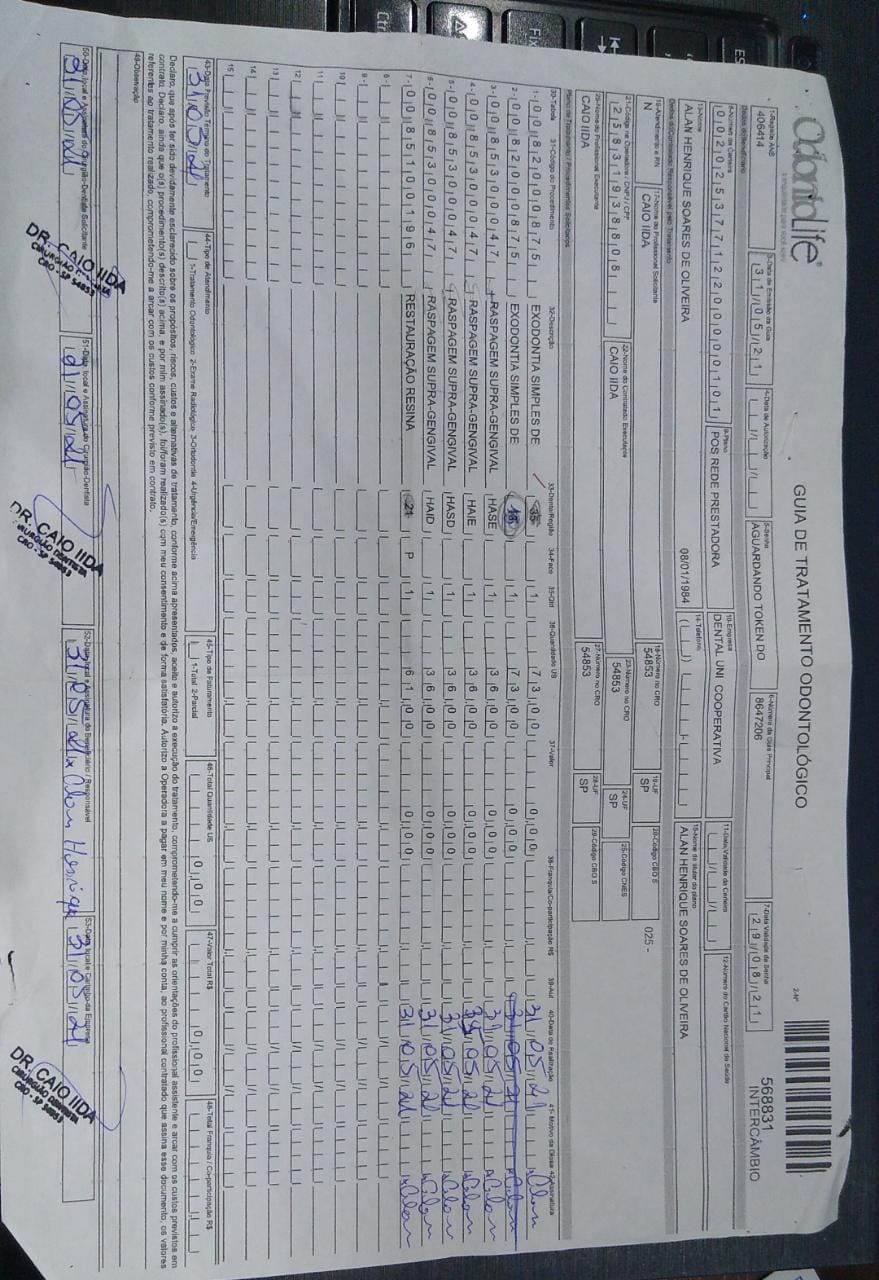 OdontoLife®
GUIA DE TRATAMENTO ODONTOLÓGICO
2-Nº
568831
INTERCÂMBIO
1-Registro ANS
406414
3-Data de Emissão da Guia
31/05/21
4-Data de Autorização
5-Senha
AGUARDANDO TOKEN DO
6-Número da Guia Principal
8647206
7-Data Validade da Senha
29/08/21
Dados do Beneficiário
8-Número da Carteira
00202537712200000101
9-Plano
POS REDE PRESTADORA
10-Empresa
DENTAL UNI COOPERATIVA
11-Data Validade da Carteira
12-Número do Cartão Nacional de Saúde
13-Nome
ALAN HENRIQUE SOARES DE OLIVEIRA
08/01/1984
14-Telefone
15-Nome do titular do plano
ALAN HENRIQUE SOARES DE OLIVEIRA
Dados do Contratado Responsável pelo Tratamento
16-Atendimento a RN
N
17-Nome do Profissional Solicitante
CAIO IIDA
18-Número no CRO
54853
19-UF
SP
20-Código CBO S
025 -
21-Código na Operadora / CNPJ / CPF
25831938808
22-Nome do Contratado Executante
CAIO IIDA
23-Número no CRO
54853
24-UF
SP
25-Código CNES
26-Nome do Profissional Executante
CAIO IIDA
27-Número no CRO
54853
28-UF
SP
29-Código CBO S
Plano de Tratamento / Procedimentos Solicitados
30-Tabela 31-Código do Procedimento 32-Descrição 33-Dente/Região 34-Face 35-Qtd 36-Quantidade US 37-Valor 38-Franquia/Co-participação R$ 39-Aut 40-Data de Realização 41- Motivo da Glosa 42-Assinatura
1- 00 82000875 EXODONTIA SIMPLES DE 35 1 73,00 0,00 31/05/21 Alan
2- 00 82000875 EXODONTIA SIMPLES DE 18 1 73,00 0,00 31/05/21 Alan
3- 00 85300047 RASPAGEM SUPRA-GENGIVAL HASE 1 36,00 0,00 31/05/21 Alan
4- 00 85300047 RASPAGEM SUPRA-GENGIVAL HAIE 1 36,00 0,00 31/05/21 Alan
5- 00 85300047 RASPAGEM SUPRA-GENGIVAL HASD 1 36,00 0,00 31/05/21 Alan
6- 00 85300047 RASPAGEM SUPRA-GENGIVAL HAID 1 36,00 0,00 31/05/21 Alan
7- 00 85100196 RESTAURAÇÃO RESINA 21 P 1 61,00 0,00 31/05/21 Alan
8-
9-
10
11
12
13
14
15
43-Data Previsão Término do Tratamento
31/05/21
44-Tipo de Atendimento
1-Tratamento Odontológico 2-Exame Radiológico 3-Ortodontia 4-Urgência/Emergência
45-Tipo de Faturamento
1-Total 2-Parcial
46-Total Quantidade US
0,00
47-Valor Total R$
0,00
48-Total Franquia / Co-participação R$
Declaro, que após ter sido devidamente esclarecido sobre os propósitos, riscos, custos e alternativas de tratamento, conforme acima apresentados, aceito e autorizo a execução do tratamento, comprometendo-me a cumprir as orientações do profissional assistente e arcar com os custos previstos em
contrato. Declaro, ainda que o(s) procedimento(s) descrito(s) acima, e por mim assinado(s), foi/foram realizado(s) com meu consentimento e de forma satisfatória. Autorizo a Operadora a pagar em meu nome e por minha conta, ao profissional contratado que assina esse documento, os valores
referentes ao tratamento realizado, comprometendo-me a arcar com os custos conforme previsto em contrato.
49-Observação
50-Data, local e Assinatura do Cirurgião-Dentista Solicitante
31/05/21
51-Data, local e Assinatura do Cirurgião-Dentista
31/05/21
52-Data, local e Assinatura do Beneficiário / Responsável
31/05/21 x Alan Henrique
53-Data, local e Carimbo da Empresa
31/05/21
DR. CAIO IIDA
CIRURGIÃO DENTISTA
CRO - SP 54853
DR. CAIO IIDA
CIRURGIÃO DENTISTA
CRO - SP 54853
DR. CAIO IIDA
CIRURGIÃO DENTISTA
CRO - SP 54853